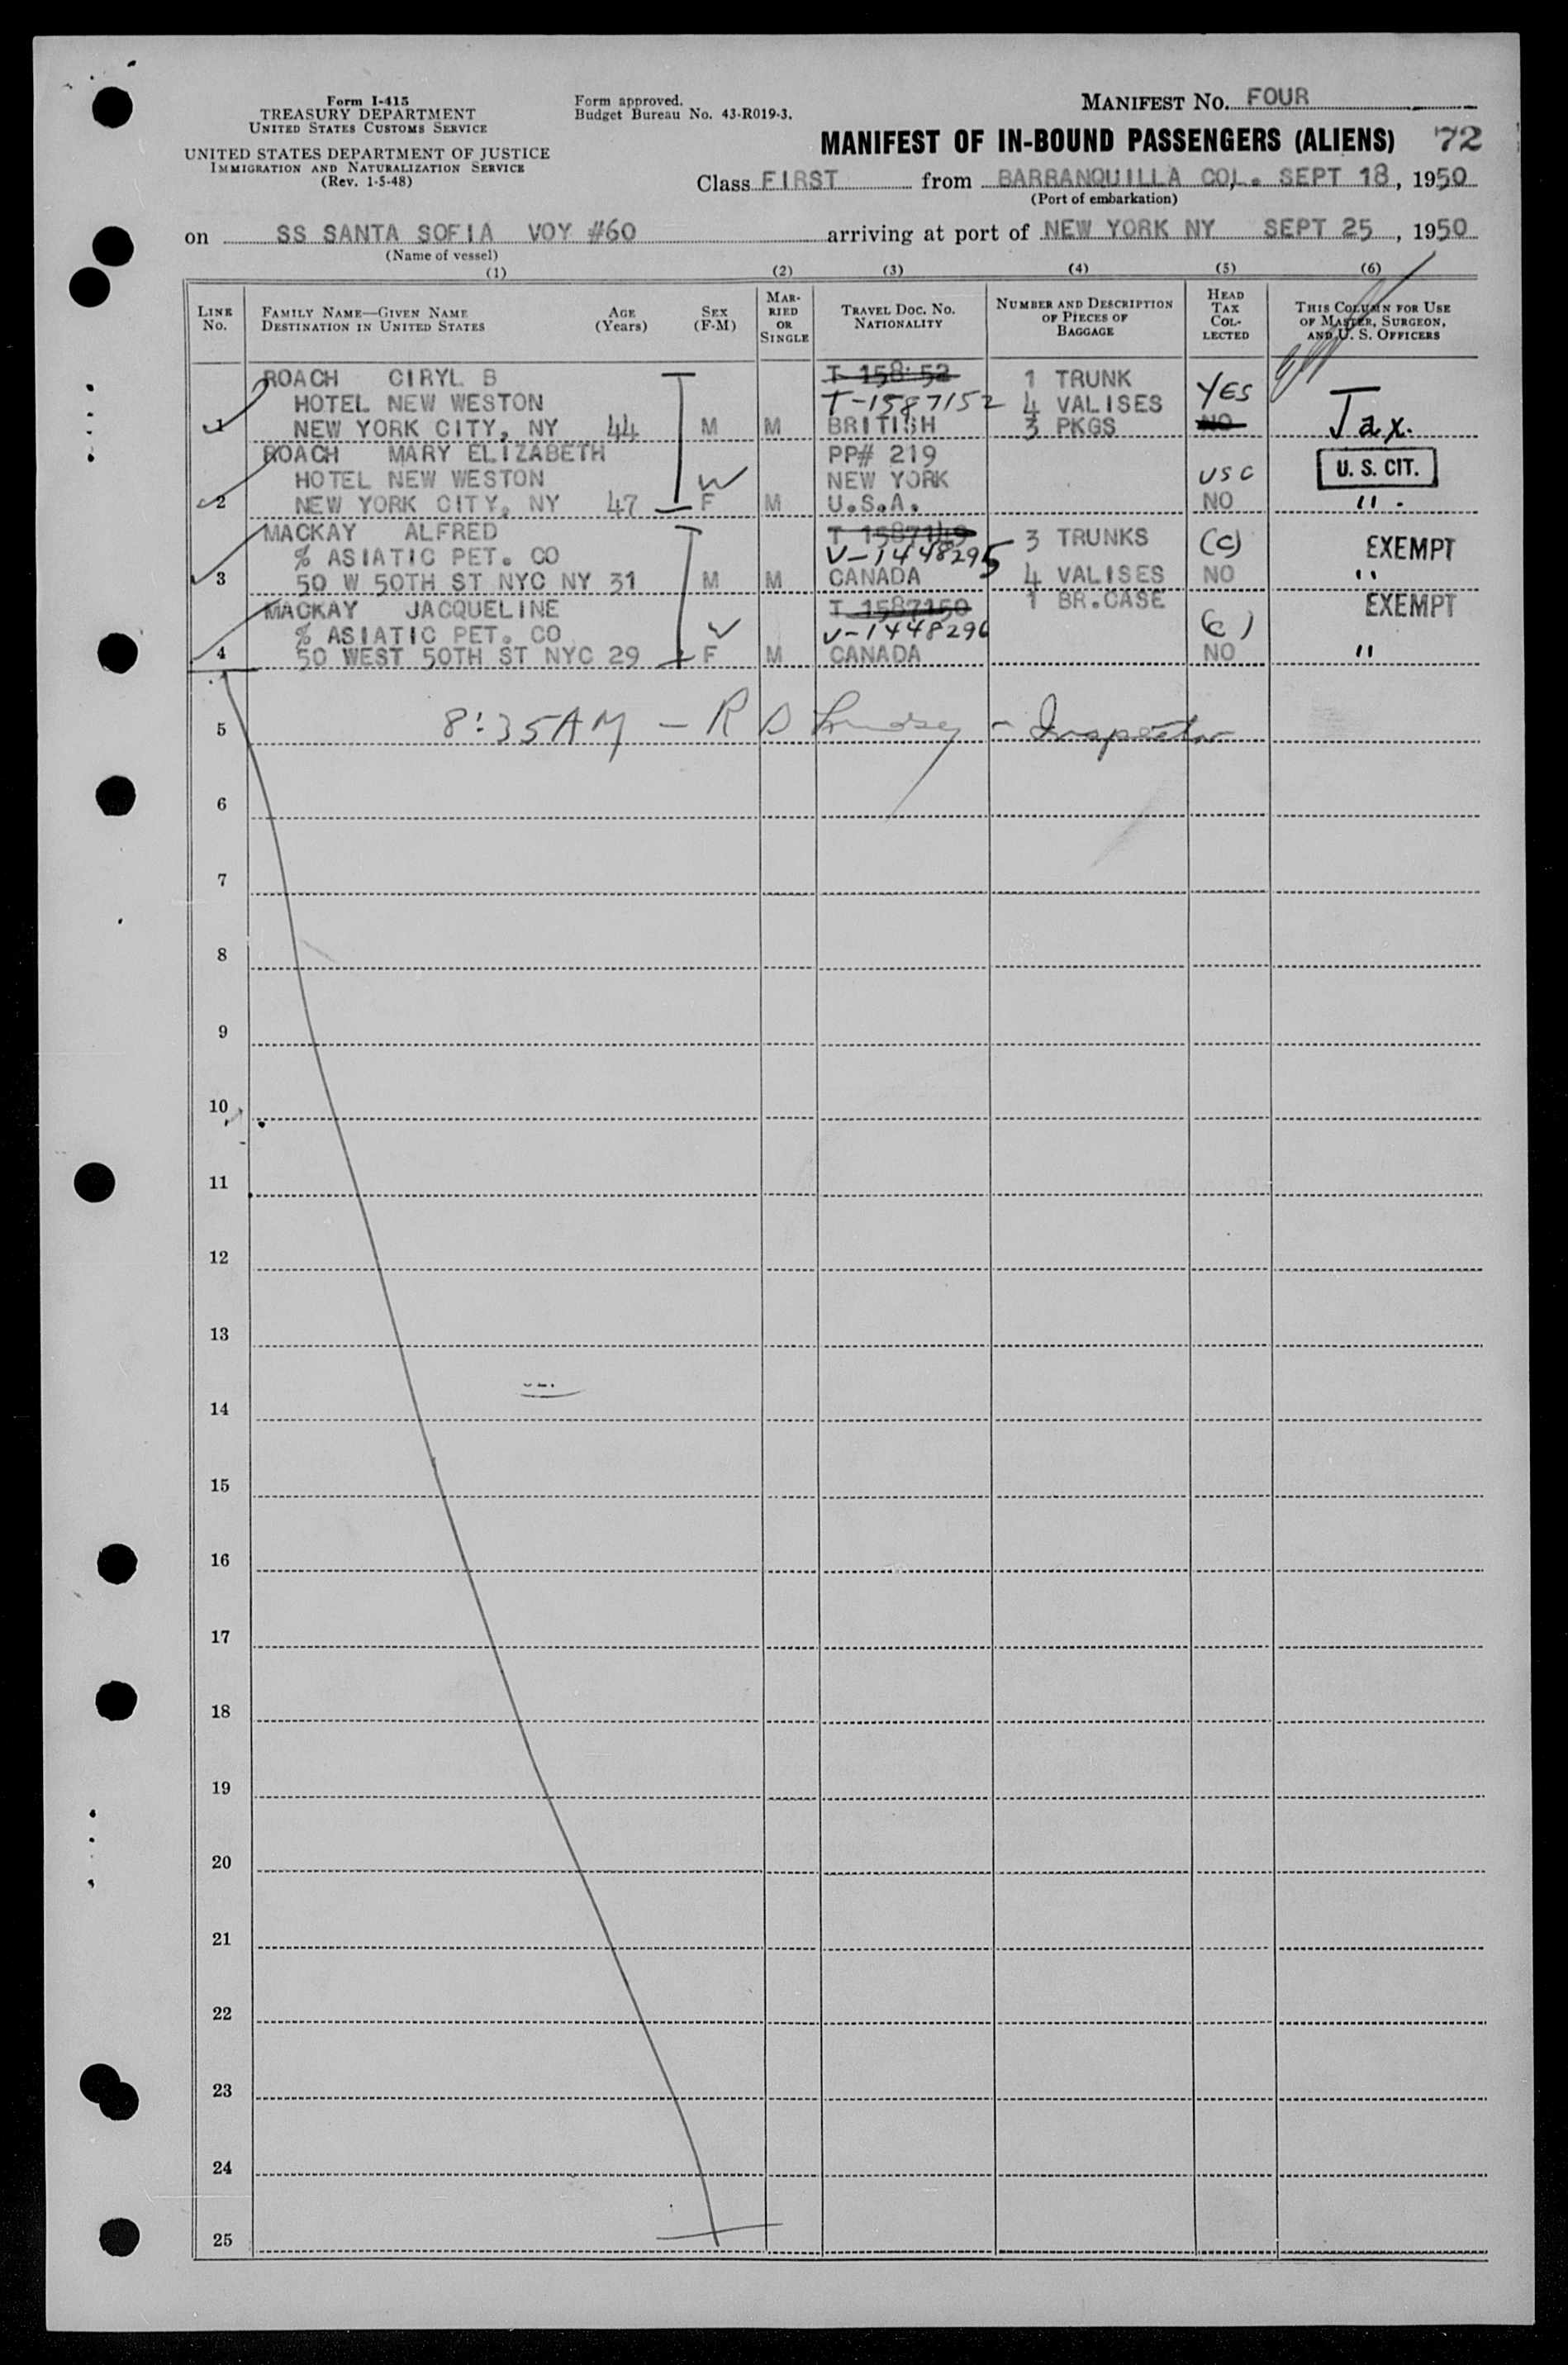 Form I-415
TREASURY DEPARTMENT
UNITED STATES CUSTOMS SERVICE
UNITED STATES DEPARTMENT OF JUSTICE
IMMIGRATION AND NATURALIZATION SERVICE
(Rev. 1-5-48)
Form approved.
Budget Bureau No. 43-R019-3.
MANIFEST NO. FOUR
MANIFEST OF IN-BOUND PASSENGERS (ALIENS) 72
Class FIRST from BARRANQUILLA COL. SEPT 18, 1950
(Port of embarkation)
on SS SANTA SOFIA VOY #60 arriving at port of NEW YORK NY SEPT 25, 1950
(Name of vessel)
(1) (2) (3) (4) (5) (6)
LINE NO.
FAMILY NAME—GIVEN NAME
DESTINATION IN UNITED STATES
AGE (Years)
SEX (F-M)
MARRIED OR SINGLE
TRAVEL DOC. NO.
NATIONALITY
NUMBER AND DESCRIPTION OF PIECES OF BAGGAGE
HEAD TAX COLLECTED
THIS COLUMN FOR USE OF MASTER, SURGEON, AND U. S. OFFICERS
ROACH CIRYL B 1 TRUNK
HOTEL NEW WESTON T-1587152 4 VALISES YES
1 NEW YORK CITY, NY 44 M M BRITISH 3 PKGS NO Tax.
ROACH MARY ELIZABETH PP# 219
HOTEL NEW WESTON NEW YORK USC U. S. CIT.
2 NEW YORK CITY, NY 47 F M U.S.A. NO " .
MACKAY ALFRED T 1587149 3 TRUNKS
% ASIATIC PET. CO V-1448295 (C) EXEMPT
3 50 W 50TH ST NYC NY 31 M M CANADA 4 VALISES NO "
MACKAY JACQUELINE T 1587150 1 BR.CASE EXEMPT
% ASIATIC PET. CO V-1448296 (C)
4 50 WEST 50TH ST NYC 29 F M CANADA NO "
5 8:35AM - R D Lindsey - Inspector
6
7
8
9
10
11
12
13
14
15
16
17
18
19
20
21
22
23
24
25